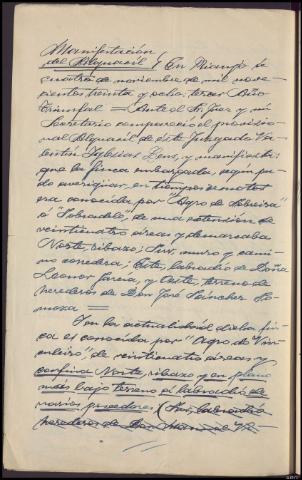 Manifestación
del Alguacil / En Rianjo a
cuatro de noviembre de mil nove-
cientos treinta y ocho, tercer Año
Triunfal = Ante el Sr. Juez y mi
Secretario compareció el provisio-
nal Alguacil de este Juzgado Va-
lentín Iglesias Dens, y manifiesta:
que la finca embargada, según pu-
do averiguar, en tiempos remotos
era conocida por "Agro de
ó "Lobradelo", de una extensión de
veinticuatro áreas y demarcaba
Norte, ribazo; Sur, muro y cami-
no ; Este, labradío de Doña
Leonor García, y Oeste, terreno de
herederos de Don José Sánchez So-
moza =
En la actualidad dicha fin-
ca es conocida por "Agro de
", de veinticuatro áreas y
confina Norte, ribazo y en plano
más bajo terreno á labradío de
varios poseedores; Sur, labradío
herederos de Don Manuel